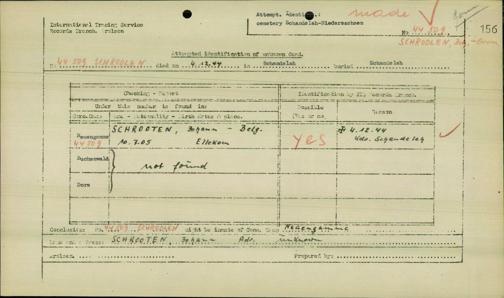 International Tracing Service
Records Branch, Arolsen
Attempt. Identi
made
cemetery Schandelah-Niedersachsen
No 44 509
156
SCHROOLEN, Belg.
Attempted identification of unknown Cond.
No 44 509 SCHROOLEN died on 4.12.44 in Schandelah buried Schandelah
Checking - Report
Identification by ITS Records Branch.
Under this number is found in:
Possible
Reason
Yes or no
Conc.Camp Name - Nationality - Birth dates & place.
SCHROOTEN, Johann - Belg.
Neuengamme
44 509
10.7.05 Ellekom
yes
4.12.44
Kdo. Schandelah
Buchenwald
not found
Dora
Conclusion: No. 44 509 SCHROOLEN might be inmate of Conc. Camp Neuengamme
Name and Press: SCHROOTEN, Johann Adr. unknown
Arolsen, Prepared by: